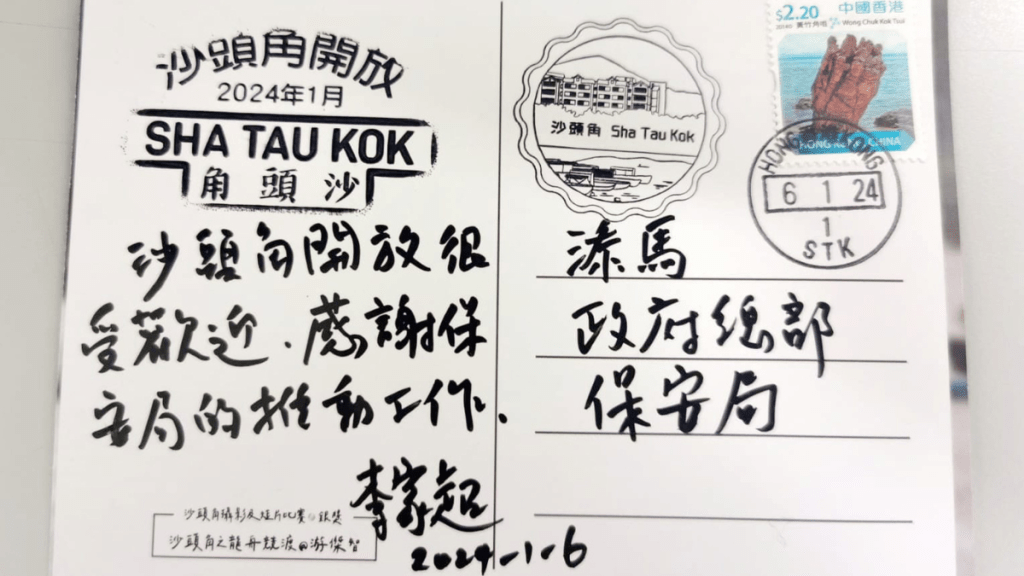 沙頭角開放
2024年1月
SHA TAU KOK
沙頭角
沙頭角開放很
受歡迎、感謝保
安局的推動工作、
李家超
2024-1-6
沙頭角攝影及短片比賽 銀獎
沙頭角之龍舟競渡 游傑智
沙頭角 Sha Tau Kok
$2.20 中國香港
黃竹角咀 Wong Chuk Kok Tsui
HONG KONG CHINA
HONG KONG
6 1 24
1
STK
添馬
政府總部
保安局